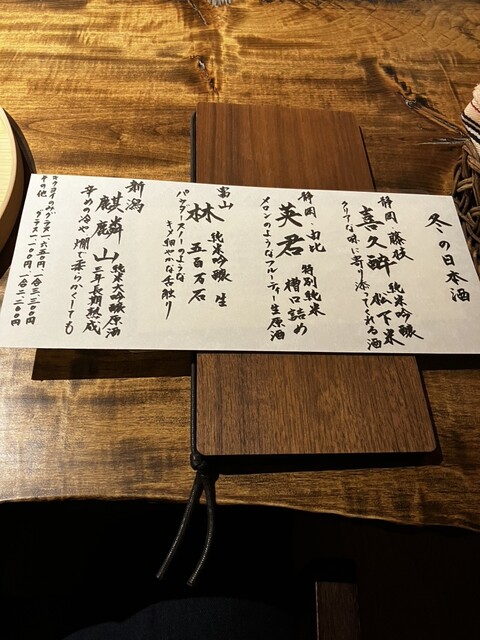 冬の日本酒
静岡 藤枝
喜久酔 純米吟醸 松下米
クリアな味に寄り添ってくれる酒
静岡 由比
英君 特別純米 槽口詰め
メロンのようなフルーティー生原酒
富山
林 純米吟醸 生 五百万石
パウダースノーのような
キメ細やかな舌触り
新潟
麒麟山 純米大吟醸原酒 三年長期熟成
辛めの冷や、燗で柔らかくしても
のみグラス 一、六五〇円 一合 三、三〇〇円
その他 グラス 一、一〇〇円 一合 二、二〇〇円